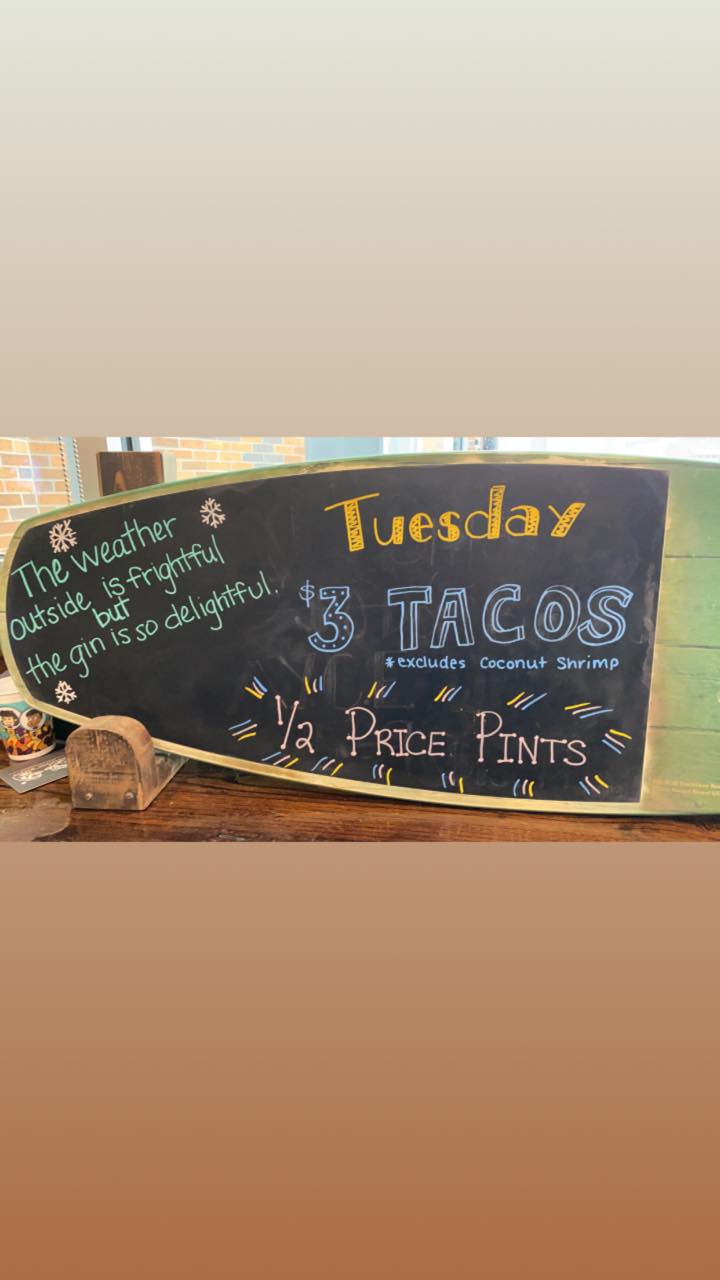 The weather
outside is frightful
but
the gin is so delightful.
Tuesday
$3 TACOS
*excludes Coconut Shrimp
1/2 PRICE PINTS